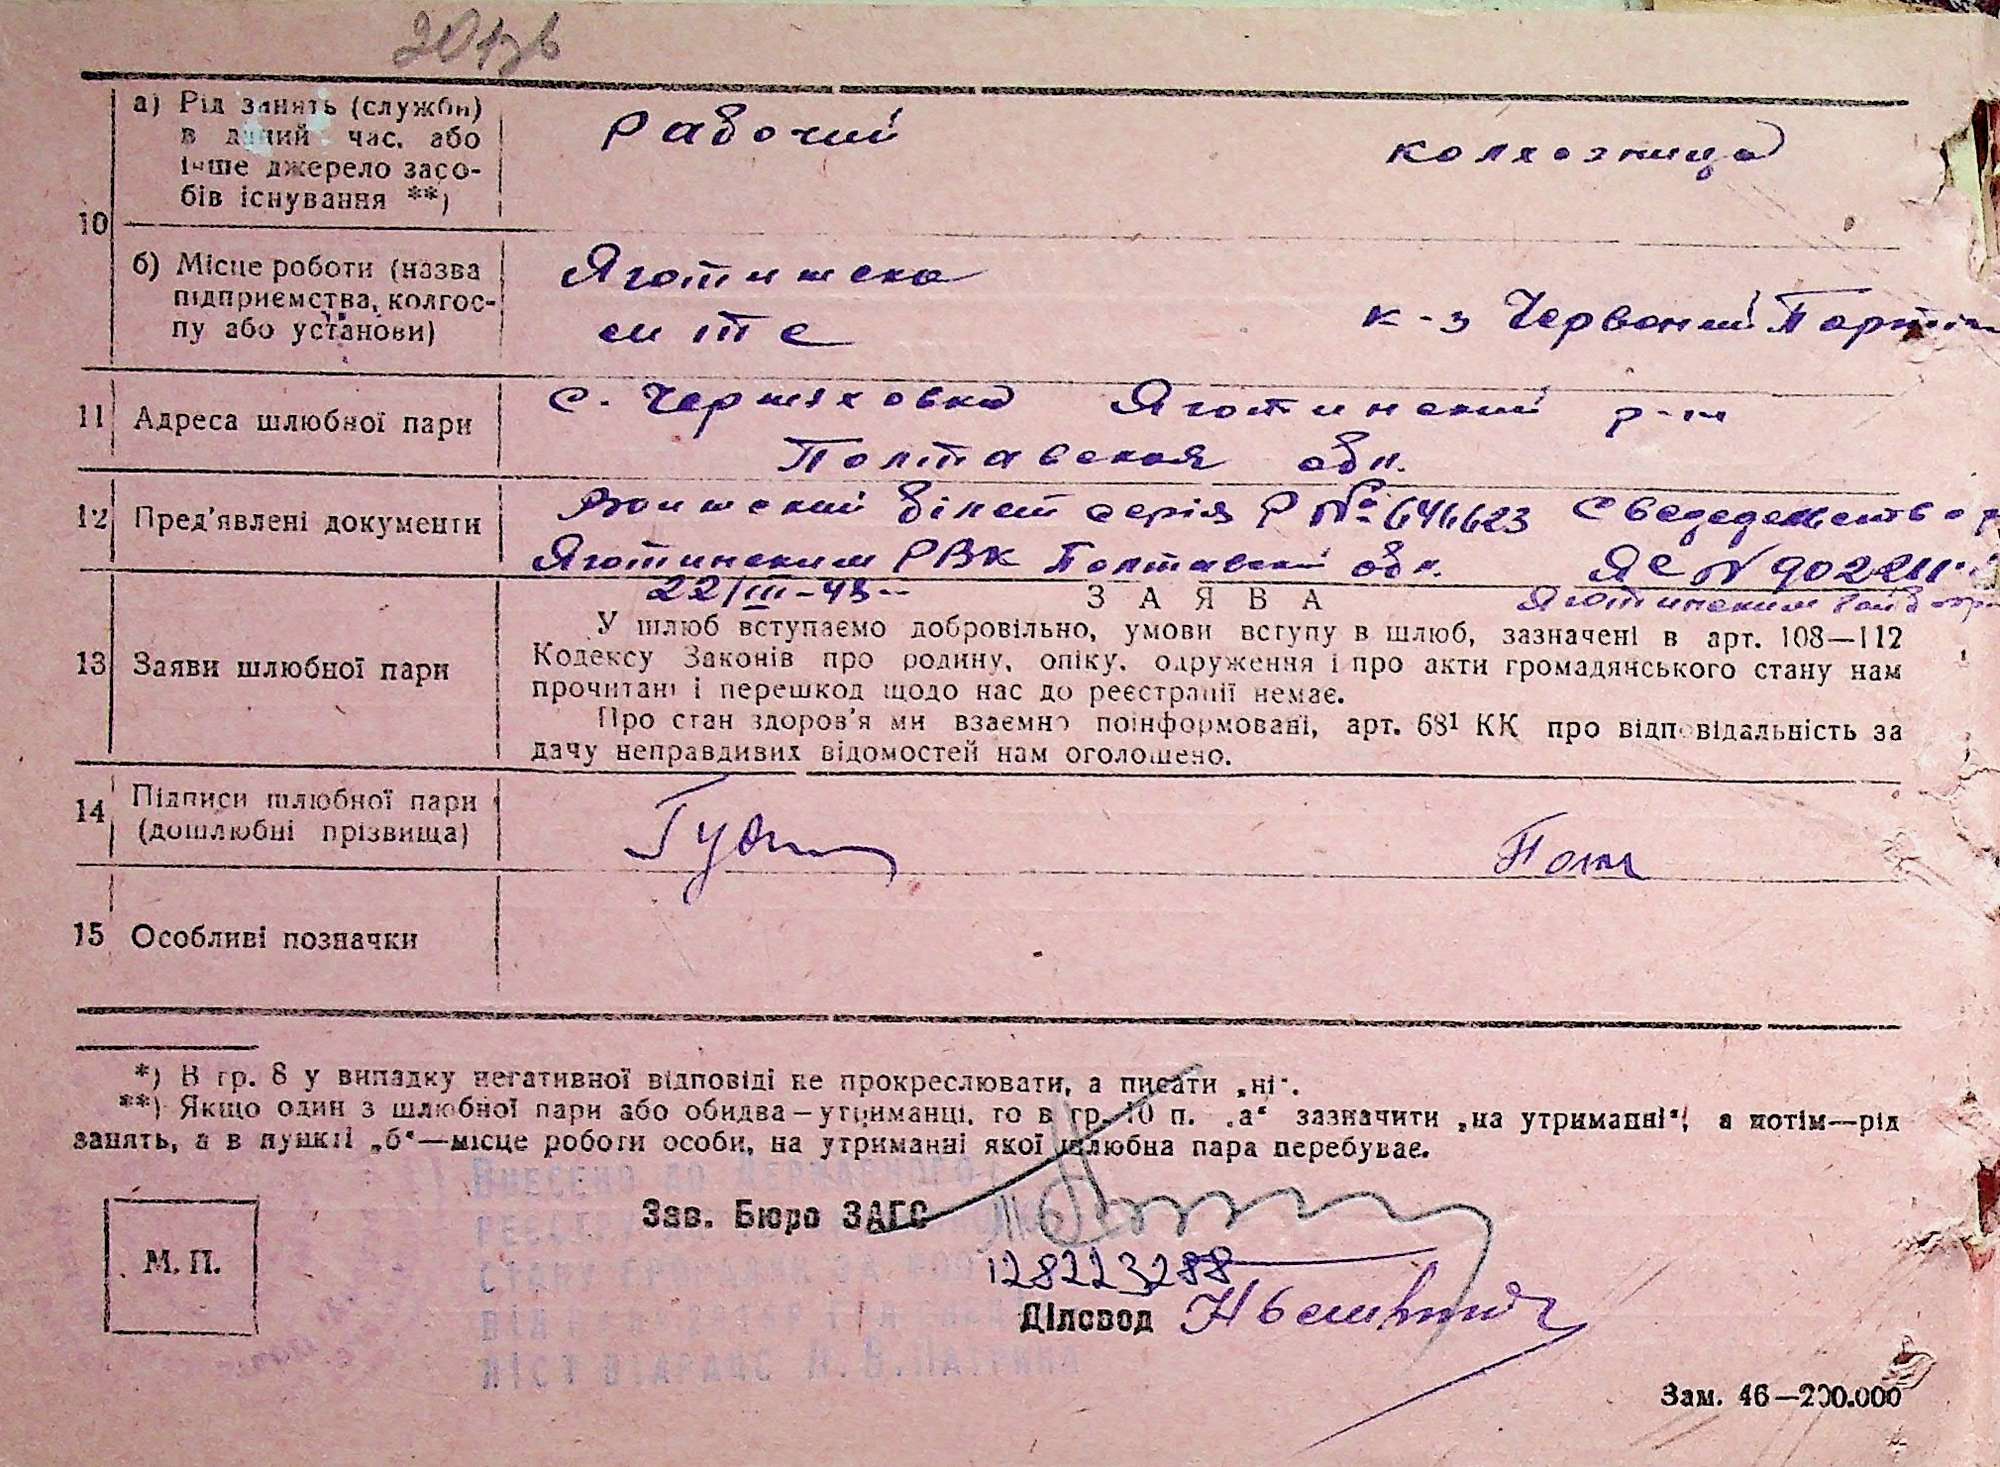 10
а) Рід занять (служби)
в даний час, або
інше джерело засо-
бів існування **)
Рабочий
колхозница
б) Місце роботи (назва
підприємства, колгос-
пу або установи)
Яготинска
мтс
к-з Червоний
11 Адреса шлюбної пари
с. Черняховка Яготинский р-н
Полтавская обл.
12 Пред'явлені документи
Воинский білет серія Р № 646623
Яготинским РВК Полтавской обл. ЯС № 902211
22/III-48
Яготинским
13 Заяви шлюбної пари
ЗАЯВА
У шлюб вступаємо добровільно, умови вступу в шлюб, зазначені в арт. 108—112
Кодексу Законів про родину, опіку, одруження і про акти громадянського стану нам
прочитані і перешкод щодо нас до реєстрації немає.
Про стан здоров'я ми взаємно поінформовані, арт. 68¹ КК про відповідальність за
дачу неправдивих відомостей нам оголошено.
14 Підписи шлюбної пари
(дошлюбні прізвища)
15 Особливі позначки
*) В гр. 8 у випадку негативної відповіді не прокреслювати, а писати „ні".
**) Якщо один з шлюбної пари або обидва—утриманці, то в гр. 10 п. „а" зазначити „на утриманні", а потім—рід
занять, а в пункті „б"—місце роботи особи, на утриманні якої шлюбна пара перебуває.
Внесено до Державного
М. П.
Зав. Бюро ЗАГС
128223288
Діловод
Зам. 46—200.000